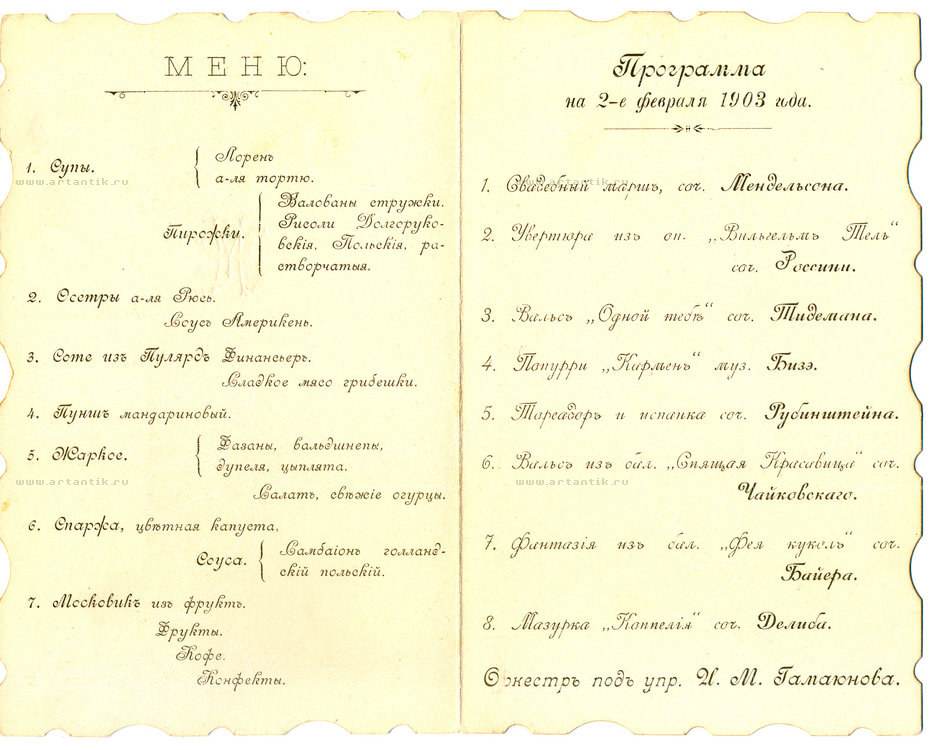 МЕНЮ:
1. Супы.
Лоренъ
а-ля тортю.
Пирожки.
Валованы стружки.
Рисоли Долгоруко-
вскія, Польскія, ра-
створчатыя.
2. Осетры а-ля Рюсъ.
Соусъ Америкенъ.
3. Соте изъ Пулярдъ Финансьеръ.
Сладкое мясо грибешки.
4. Пуншъ мандариновый.
5. Жаркое.
Фазаны, вальдшнепы,
дупеля, цыплята.
Салатъ, свѣжіе огурцы.
6. Спаржа, цвѣтная капуста,
Соуса.
Самбаіонъ голланд-
скій польскій.
7. Московикъ изъ фруктъ.
Фрукты.
Кофе.
Конфекты.
Программа
на 2-е февраля 1903 года.
1. Свадебный маршъ, соч. Мендельсона.
2. Увертюра изъ оп. „Вильгельмъ Тель“
соч. Россини.
3. Вальсъ „Одной тебѣ“ соч. Тидемана.
4. Попурри „Карменъ“ муз. Бизэ.
5. Тореадоръ и испанка соч. Рубинштейна.
6. Вальсъ изъ бал. „Спящая Красавица“ соч.
Чайковскаго.
7. Фантазія изъ бал. „Фея куколъ“ соч.
Байера.
8. Мазурка „Коппелія“ соч. Делиба.
Оркестръ подъ упр. И. М. Гамаюнова.
www.artantik.ru
www.artantik.ru
www.artantik.ru
www.artantik.ru